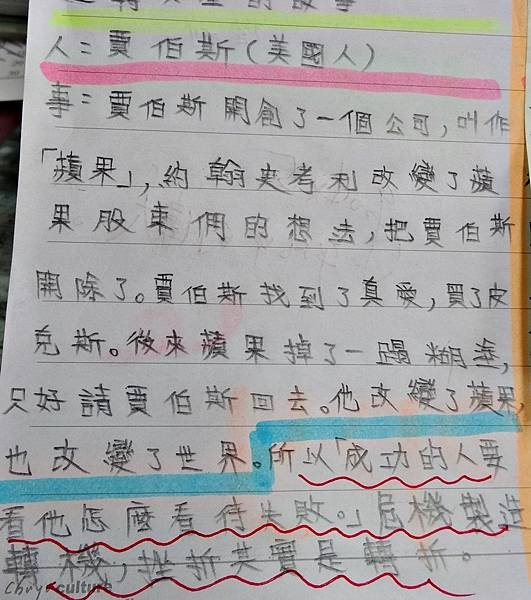 人：賈伯斯（美國人）
事：賈伯斯開創了一個公司，叫作
「蘋果」，約翰史考利改變了蘋
果股東們的想法，把賈伯斯
開除了。賈伯斯找到了真愛，買了皮
克斯。後來蘋果掉了一蹋糊塗，
只好請賈伯斯回去。他改變了蘋果，
也改變了世界。所以「成功的人要
看他怎麼看待失敗。」危機製造
轉機，挫折其實是轉折。
culture